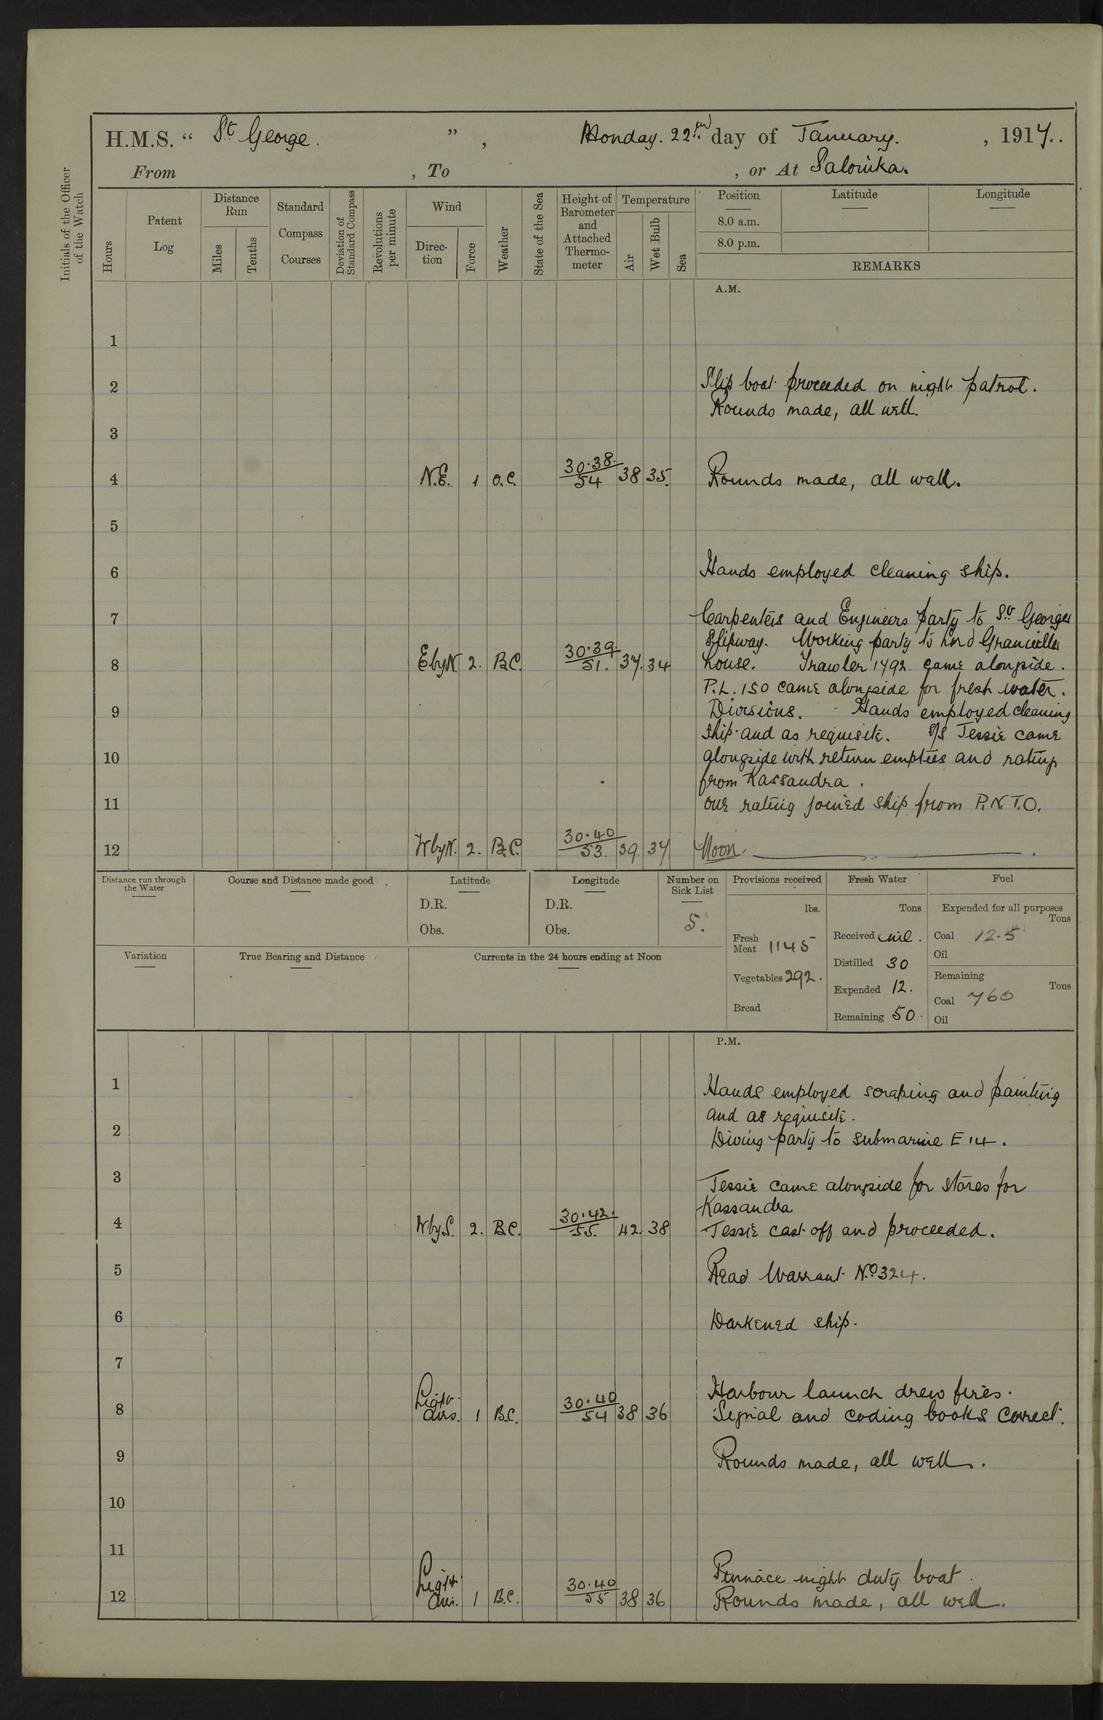 H.M.S. “ St George. ” , Monday. 22nd day of January. , 1917..
From , To , or At Salonika.
Initials of the Officer of the Watch
Hours
Patent Log
Distance Run
Miles
Tenths
Standard Compass Courses
Deviation of Standard Compass
Revolutions per minute
Wind
Direc-tion
Force
Weather
State of the Sea
Height of Barometer and Attached Thermo-meter
Temperature
Air
Wet Bulb
Sea
Position
8.0 a.m.
8.0 p.m.
Latitude
Longitude
REMARKS
A.M.
1
2 Slip boat proceeded on night patrol.
Rounds made, all well.
3
4 N.E. 1 O.C. 30.38/54 38 35. Rounds made, all well.
5
6 Hands employed cleaning ship.
7 Carpenters and Engineers party to St Georges
Slipway. Working party to Lord Granville
8 EbyN. 2. B.C. 30.39/51. 37. 34 house. Trawler 1792 came alongside.
P.L. 150 came alongside for fresh water.
9 Divisions. Hands employed cleaning
ship and as requisite. S/S Tessie came
10 alongside with return empties and rating
from Kassandra.
11 one rating joined ship from P.N.T.O.
12 WbyN. 2. B.C. 30.40/53. 39. 37 Noon.
Distance run through the Water
Course and Distance made good
Latitude
D.R.
Obs.
Longitude
D.R.
Obs.
Number on Sick List
5.
Provisions received
lbs.
Fresh Meat 1145
Vegetables 292.
Bread
Fresh Water
Tons
Received nil.
Distilled 30
Expended 12.
Remaining 50.
Fuel
Expended for all purposes
Tons
Coal 12.5
Oil
Remaining
Tons
Coal 760
Oil
Variation
True Bearing and Distance
Currents in the 24 hours ending at Noon
P.M.
1 Hands employed scraping and painting
and as requisite.
2 Diving party to submarine E 14.
3 Tessie came alongside for stores for
Kassandra
4 WbyS. 2. B.C. 30.42./55. 42. 38 Tessie cast off and proceeded.
5 Read Warrant No 324.
6 Darkened ship.
7
Harbour launch drew fires.
8 Light airs. 1 B.C. 30.40/54 38 36 Signal and coding books correct.
9 Rounds made, all well.
10
11
Pinnace night duty boat.
12 Light airs. 1 B.C. 30.40/55 38 36 Rounds made, all well.